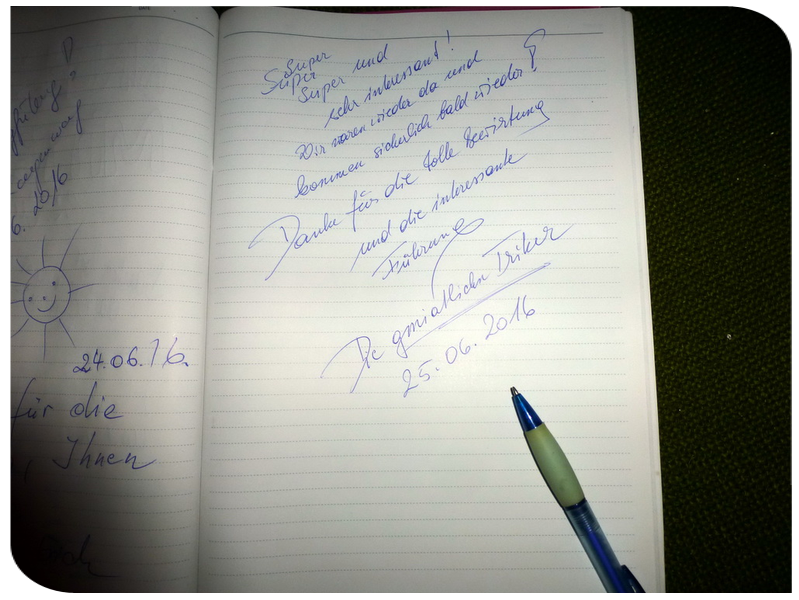 6. 2016
24.06.16.
für die
Ihnen
Super
Super
Super und
sehr interessant!
Wir waren wieder da und
kommen sicherlich bald wieder!
Danke für die tolle Bewirtung
und die interessante
Führung
Die gmiatlichn Triker
25.06.2016